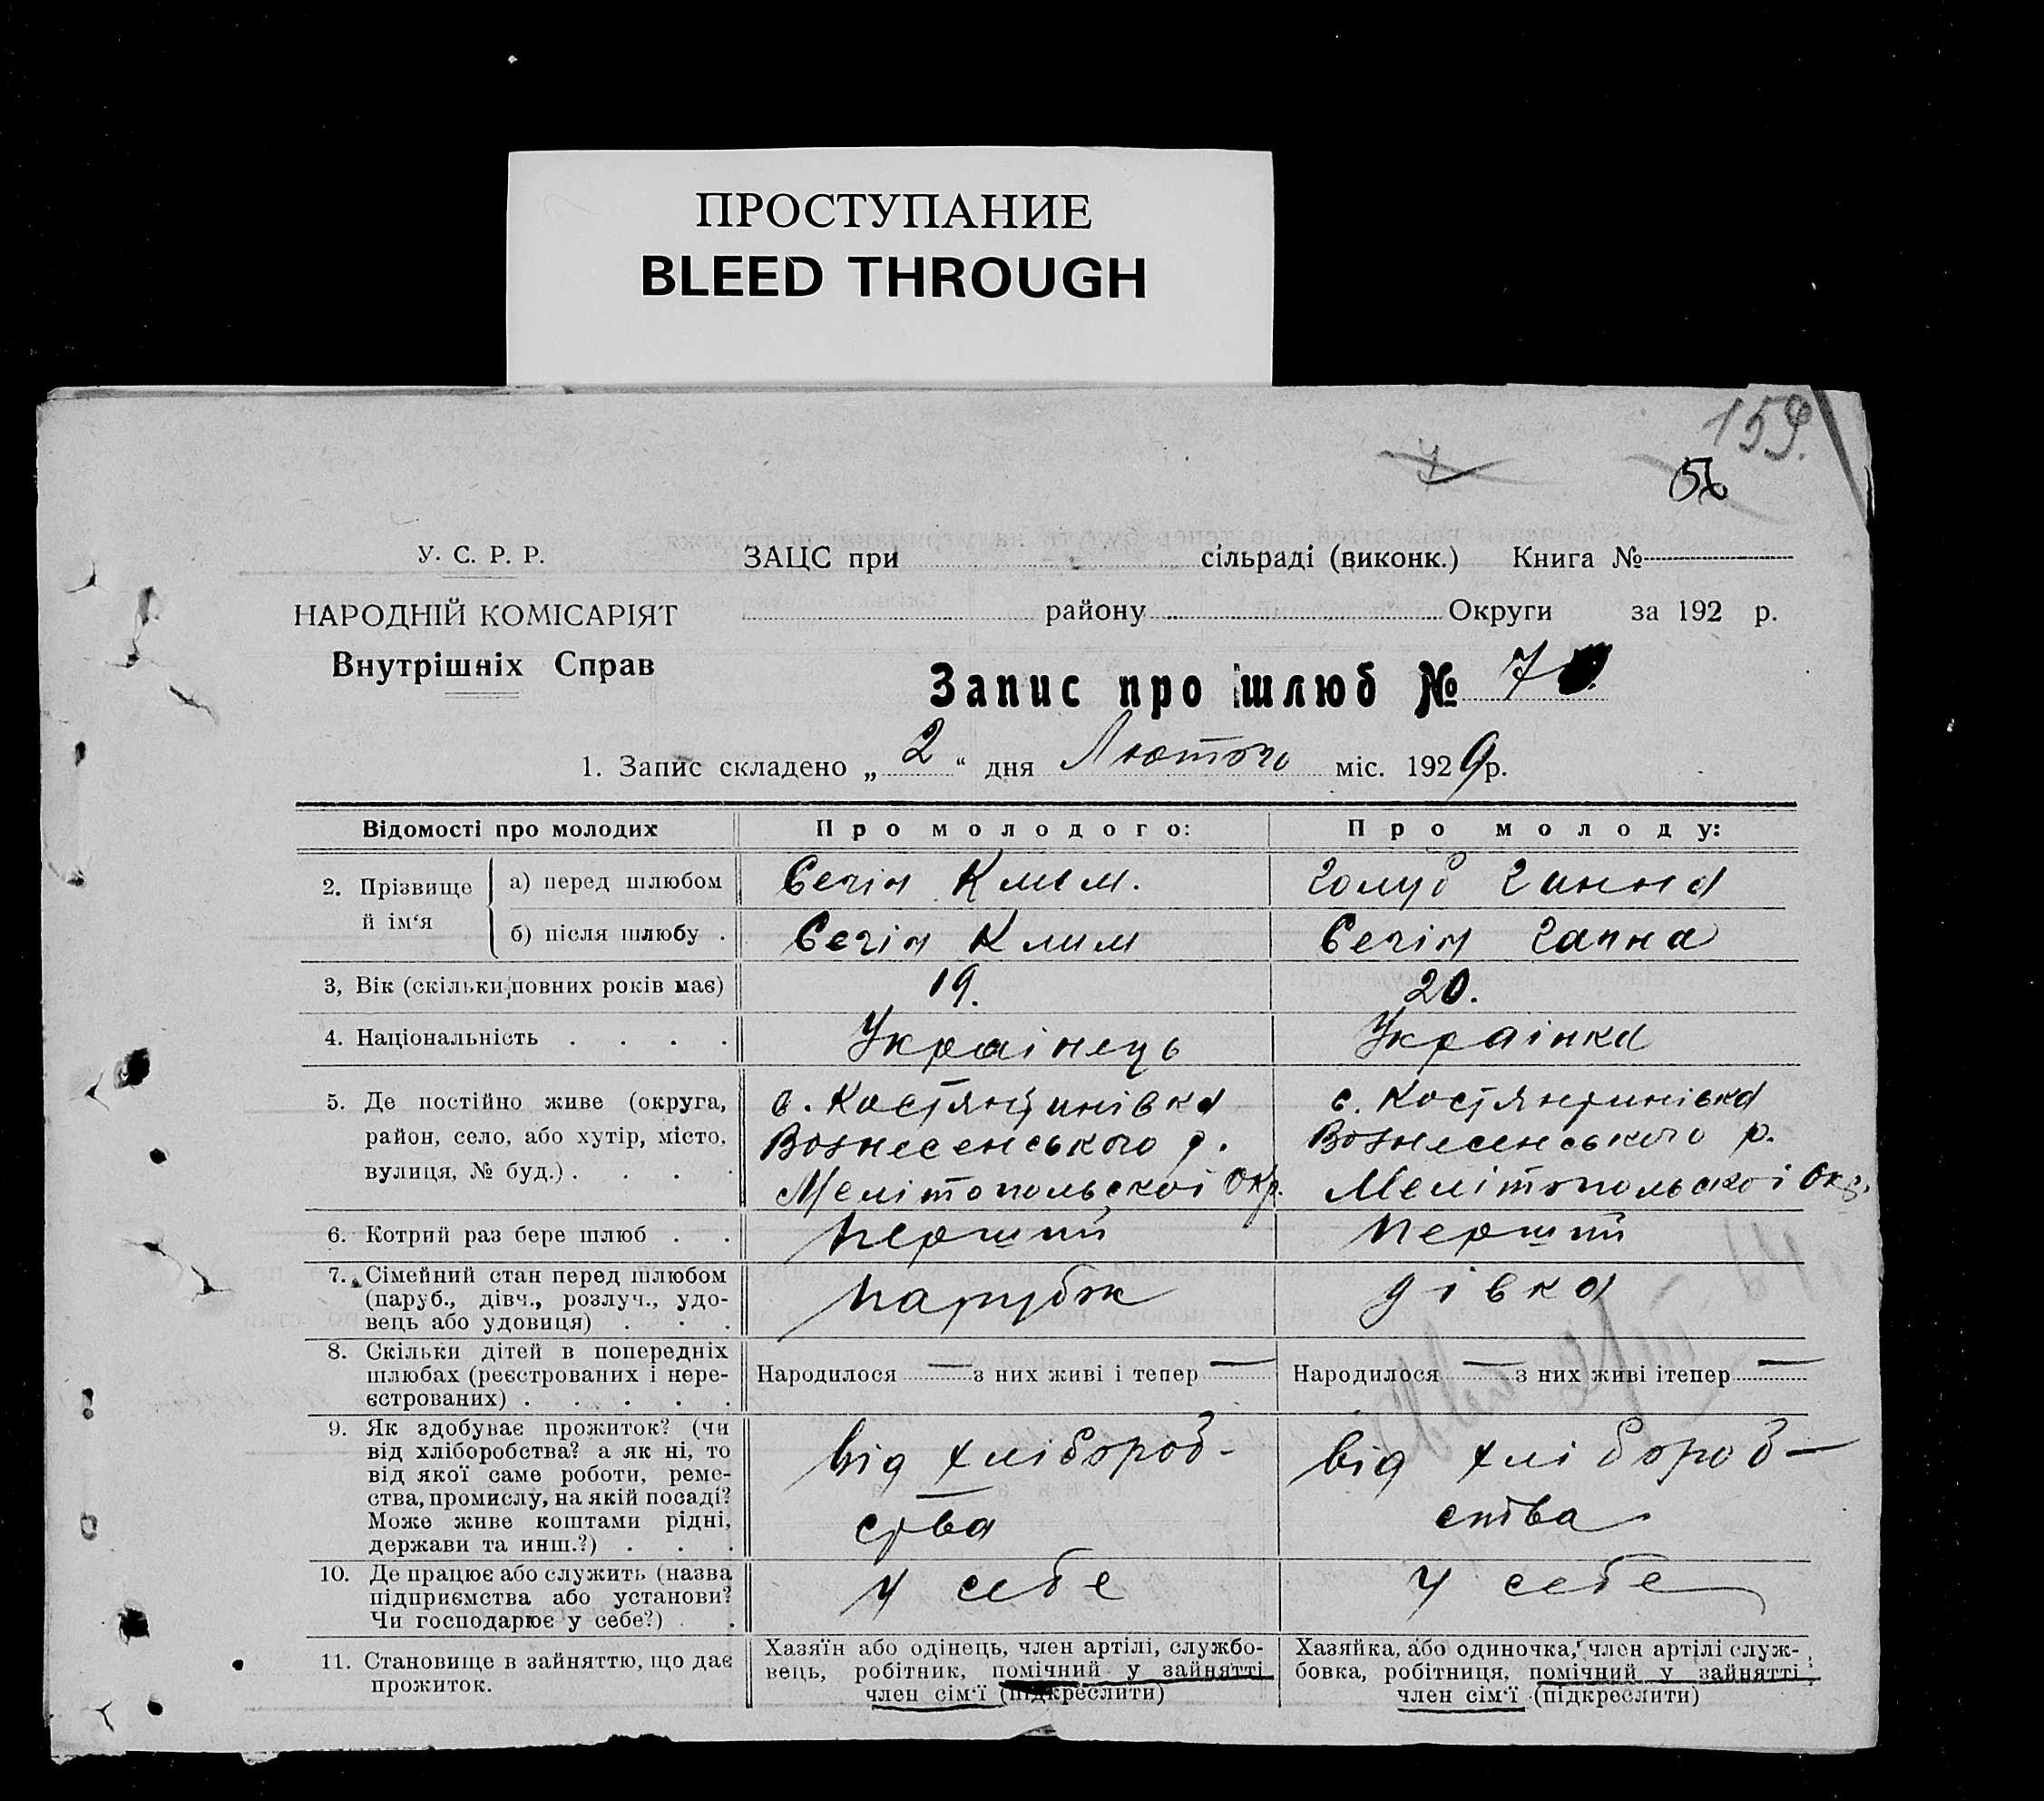 ПРОСТУПАНИЕ
BLEED THROUGH
159.
У. С. Р. Р.
ЗАЦС при сільраді (виконк.) Книга №
НАРОДНІЙ КОМІСАРІЯТ
району Округи за 192 р.
Внутрішніх Справ
Запис про шлюб № 7
1. Запис складено „ 2 “ дня Лютого міс. 1929 р.
Відомості про молодих
Про молодого:
Про молоду:
2. Прізвище й ім‘я
а) перед шлюбом
Сечін Клим.
Голуб Ганна
б) після шлюбу .
Сечін Клим
Сечін Ганна
3, Вік (скільки повних років має)
19.
20.
4. Національність . . . .
Украінець
Украінка
5. Де постійно живе (округа,
район, село, або хутір, місто,
вулиця, № буд.) . . . .
с. Костянтинівка
Вознесенського р.
Мелітопольскоі Окр.
с. Костянтинівка
Вознесенського р.
Мелітопольскоі Окр.
6. Котрий раз бере шлюб . .
перший
перший
7. Сімейний стан перед шлюбом
(паруб., дівч., розлуч., удо-
вець або удовиця) . . .
парубок
дівка
8. Скільки дітей в попередніх
шлюбах (реєстрованих і нере-
єстрованих) . . . . .
Народилося — з них живі і тепер —
Народилося — з них живі ітепер —
9. Як здобуває прожиток? (чи
від хліборобства? а як ні, то
від якої саме роботи, реме-
ства, промислу, на якій посаді?
Може живе коштами рідні,
держави та инш.?) . . .
від хлібороб-
ства
від хлібороб-
ства
10. Де працює або служить (назва
підприємства або установи?
Чи господарює у себе?) . .
У себе
У себе
11. Становище в зайняттю, що дає
прожиток.
Хазяїн або одінець, член артілі, службо-
вець, робітник, помічний у зайнятті
член сім‘ї (підкреслити)
Хазяйка, або одиночка, член артілі служ-
бовка, робітниця, помічний у зайнятті
член сім‘ї (підкреслити)